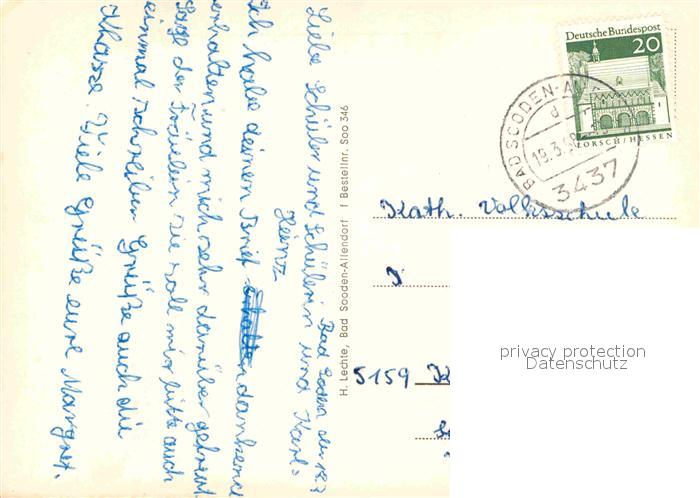 Bad Soden den 18.3
Liebe Schüler und Schülerin und Karl-
Heinz
Ich habe deinen Brief dankend
erhalten und mich sehr darüber gefreut.
Sage der Fräulein sie soll mir bitte auch
einmal schreiben Grüße auch die
Klasse. Viele Grüße eure Margret.
H. Lechte, Bad Sooden-Allendorf | Bestellnr. Soo 346
Deutsche Bundespost
20
LORSCH/HESSEN
BAD SOODEN-A
d
19.3.68
3437
Kath. Volksschule
5159 K
privacy protection
Datenschutz